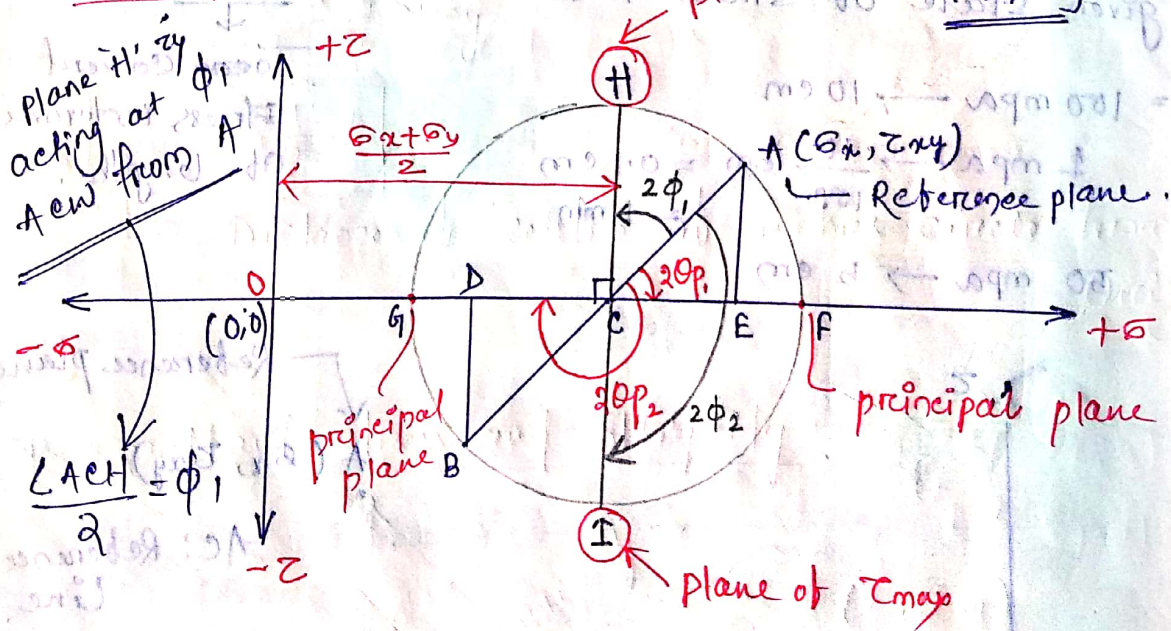 plane 'H' is
acting at ϕ₁
ACW from A
+τ
H
σx+σy
2
A (σx, τxy)
Reference plane.
2ϕ₁
2θp₁
O
(0,0)
D
G
C
E
F
-σ
+σ
2θp₂
2ϕ₂
principal
plane
principal plane
B
∠ACH = ϕ₁
2
-τ
I
plane of τmax